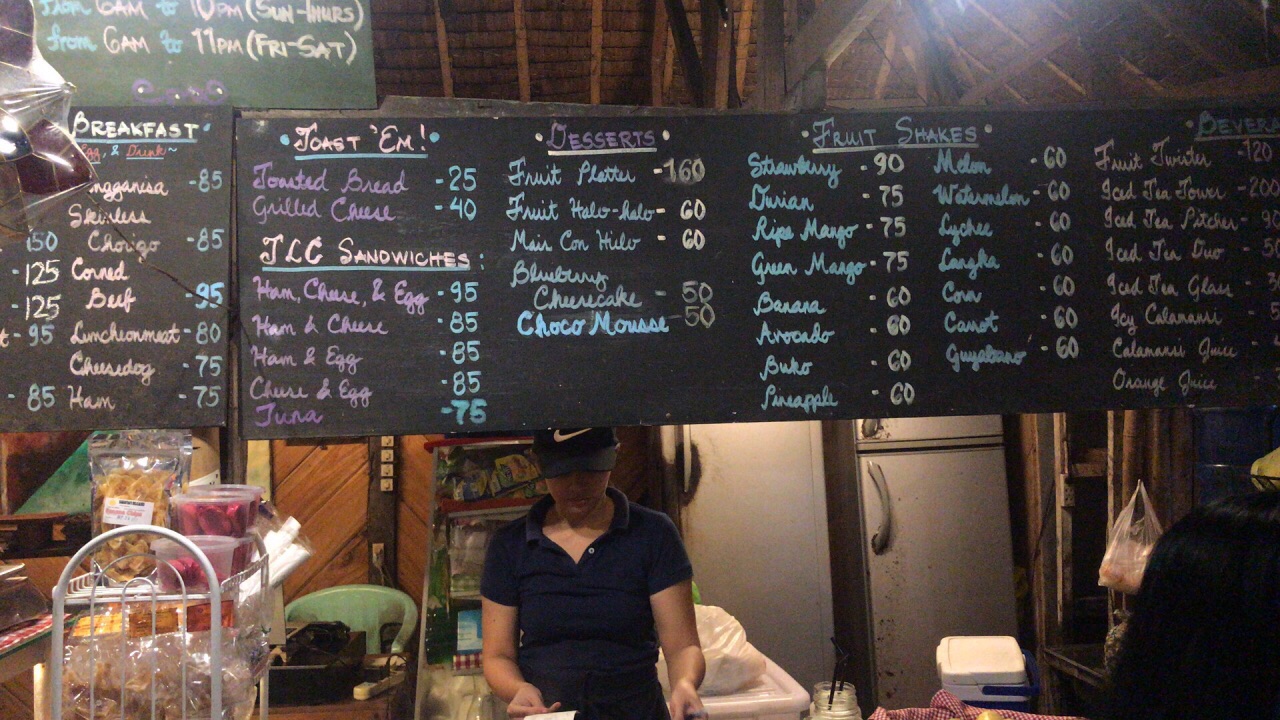 from 6AM to 10PM (SUN-THURS)
from 6AM to 11PM (FRI-SAT)
BREAKFAST
Egg, & Drink~
ngganisa -85
Skinless
150 Chorizo -85
-125 Corned
-125 Beef -95
-95 Luncheonmeat -80
Cheesedog -75
-85 Ham -75
TOAST 'EM!
Toasted Bread -25
Grilled Cheese -40
TLC SANDWICHES:
Ham, Cheese, & Egg -95
Ham & Cheese -85
Ham & Egg -85
Cheese & Egg -85
Tuna -75
DESSERTS
Fruit Platter -160
Fruit Halo-halo - 60
Mais Con Hielo - 60
Blueberry
Cheesecake - 50
Choco Mousse - 50
FRUIT SHAKES
Strawberry - 90
Durian - 75
Ripe Mango - 75
Green Mango - 75
Banana - 60
Avocado - 60
Buko - 60
Pineapple - 60
Melon - 60
Watermelon - 60
Lychee - 60
Langka - 60
Corn - 60
Carrot - 60
Guyabano - 60
BEVER
Fruit Twister -120
Iced Tea Tower -200
Iced Tea Pitcher -
Iced Tea Duo -
Iced Tea Glass -
Icy Calamansi -
Calamansi Juice -
Orange Juice -